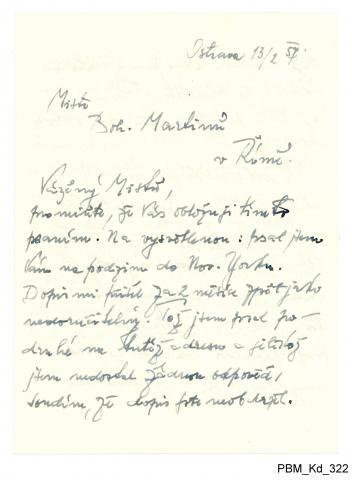 Ostrava 13/2 57.
Mistr
Boh. Martinů
v Římě.
Vážený Mistře,
promiňte, že Vás obtěžuji tímto
psaním. Na vysvětlenou: psal jsem
Vám na podzim do Nov. Yorku.
Dopis mi přišel za 2 měsíce zpět jako
nedoručitelný. Též jsem psal po-
druhé na tutéž adresu a jelikož
jsem nedostal žádnou odpověď,
soudím, že dopis jste neobdržel.
PBM_Kd_322